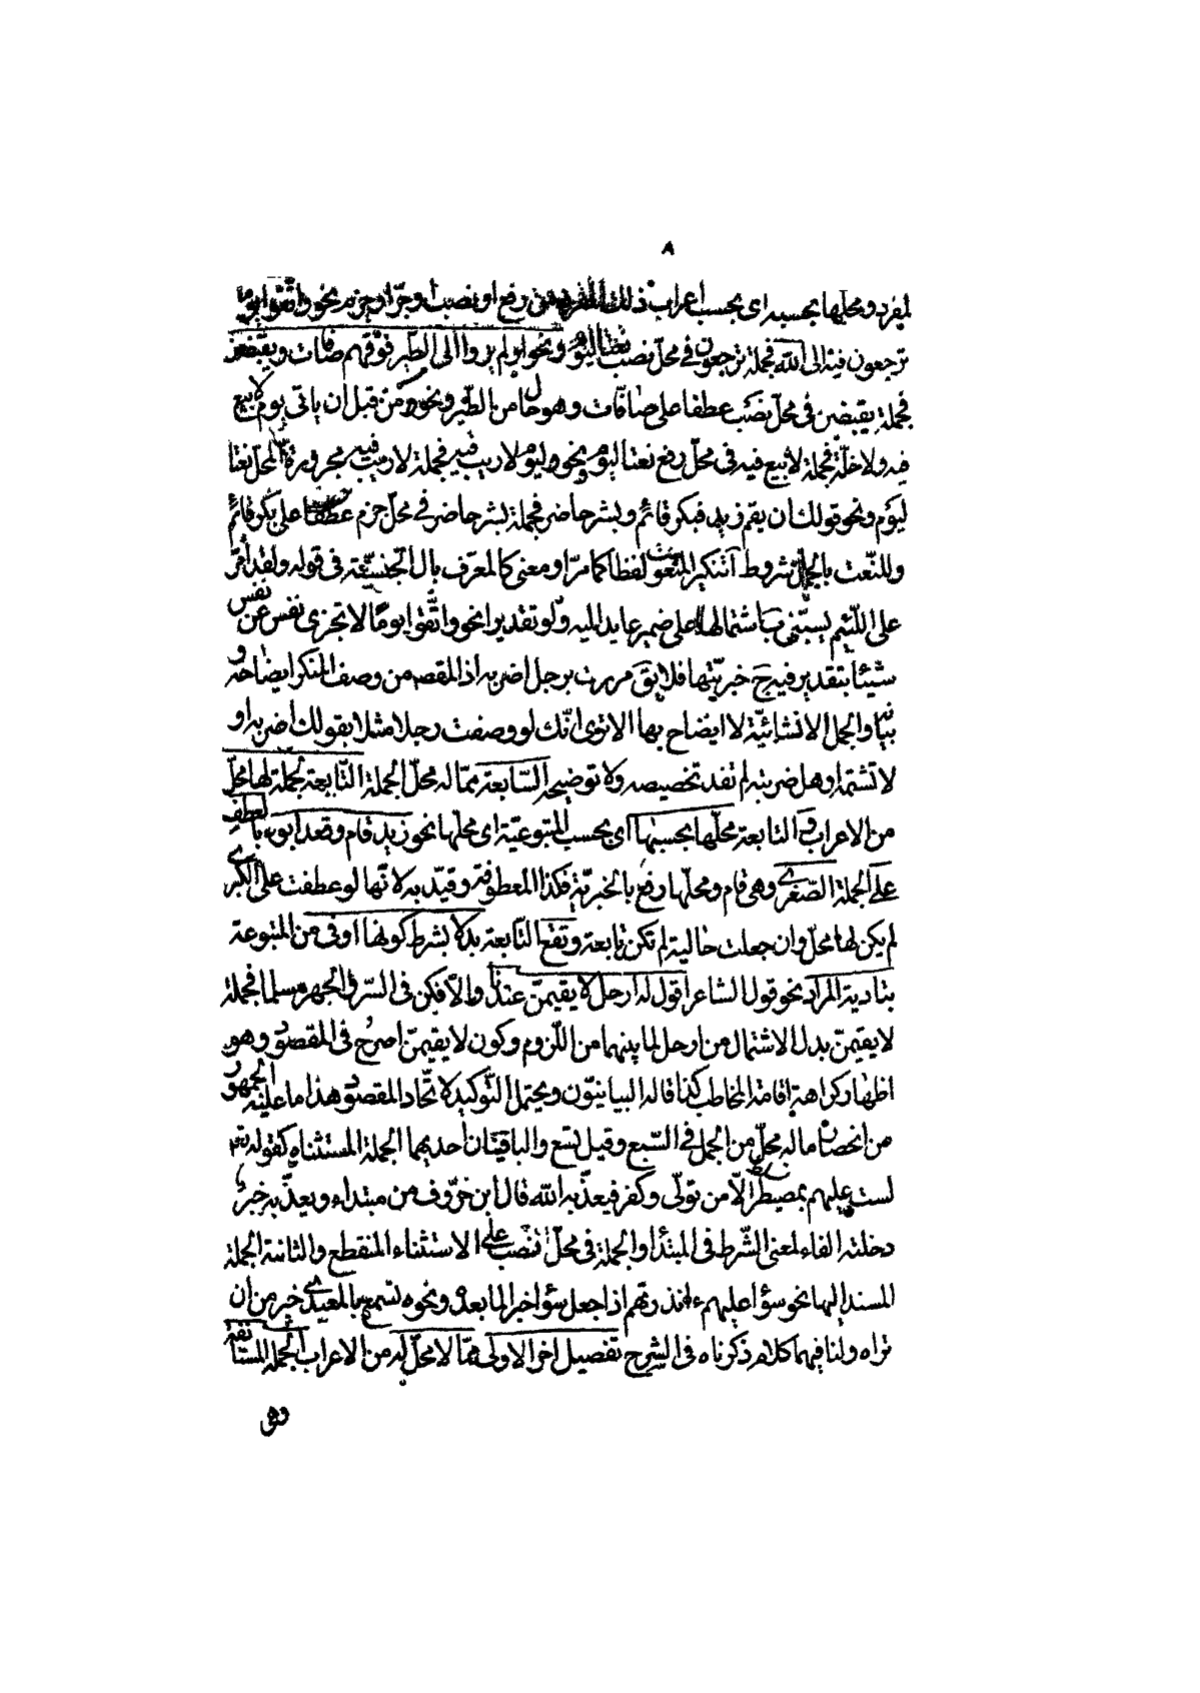 ٨
لمفرد ومحلها بحسبه اى بحسب اعراب ذلك المفرد من رفع او نصب او جرّ او جزم نحو واتقوا يوما
ترجعون فيه الى الله فجملة ترجعون فى محلّ نصب نعتا ليوم ونحو اولم يروا الى الطير فوقهم صافات ويقبضن
فجملة يقبضن فى محلّ نصب عطفا على صافّات وهو حال من الطير ونحو من قبل ان ياتى يوم لا بيع
فيه ولا خلّة فجملة لا بيع فيه فى محلّ رفع نعتا ليوم ونحو ليوم لا ريب فيه فجملة لا ريب فيه مجرورة المحلّ نعتا
ليوم ونحو قولك ان يقم زيد فبكر قائم وبشر حاضر فجملة بشر حاضر فى محلّ جزم عطفا على بكر قائم
وللنّعت بالجمل شروط تنكير المنعوت لفظا كما مرّ او معنى كالمعرّف بال الجنسيّة فى قوله ولقد امرّ
على اللّئيم يسبّنى واشتمالها على ضمير عايد اليه ولو تقديرا نحو واتّقوا يوما لا تجزى نفس عن نفس
شيئا بتقدير فيه خبريّتها فلا يق مررت برجل اضربه اذ المقصـ من وصف المنكر ايضاحه و
بيا والجمل الانشائيّة لا ايضاح بها الا ترى انّك لو وصفت رجلا مثلا بقولك اضربه او
لا تشتمه او هل ضربته لم تفد تخصيصه ولا توضيحه السّابعة ممّا له محلّ الجملة التّابعة لجملة لها محلّ
من الاعراب و التابعة محلّها بحسبها اى بحسب المتبوعيّة اى محلها نحو زيد قام وقعد ابوه بالعطف
على الجملة الصّغرى وهى قام ومحلّها رفع بالخبريّة فكذا المعطوفة وقيّد به لانّها لو عطفت على الكبرى
لم يكن لها محلّ وان جعلت حالية لم تكن تابعة وتقع التّابعة بدلا بشرط كونها اوفى من المتبوعة
بتادية المراد نحو قول الشاعر اقول له ارحل لا يقيمنّ عندنا والّا فكن فى السّر والجهر مسلما فجملة
لا يقيمنّ بدل الاشتمال من ارحل لما بينهما من اللّزوم وكون لا يقيمنّ اصرح فى المقصود وهو
اظهار كراهة اقامة المخاطب كما قاله البيانيّون ويحتمل التّوكيد لاتّحاد المقصود هذا ما عليه الجمهور
من انحصار ما له محلّ من الجمل فى السّبع وقيل تسع والباقيتان احديهما الجملة المستثناة كقوله تعم
لست عليهم بمصيطر الّا من تولّى وكفر فيعذّبه الله قال ابن خرّوف من مبتداء ويعذّبه خبر
دخلته الفاء لمعنى الشّرط فى المبتدأ والجملة فى محلّ نصب على الاستثناء المنقطع والثانية الجملة
المسند اليها نحو سؤاء عليهم ءانذرتهم اذا جعل سؤاء خبرا لما بعده ونحو تسمع بالمعيدى خير من ان
تراه ولنا فيهما كلام ذكرناه فى الشرح تفصيل اخر الاولى ممّا لا محلّ له من الاعراب الجملة المستانفة